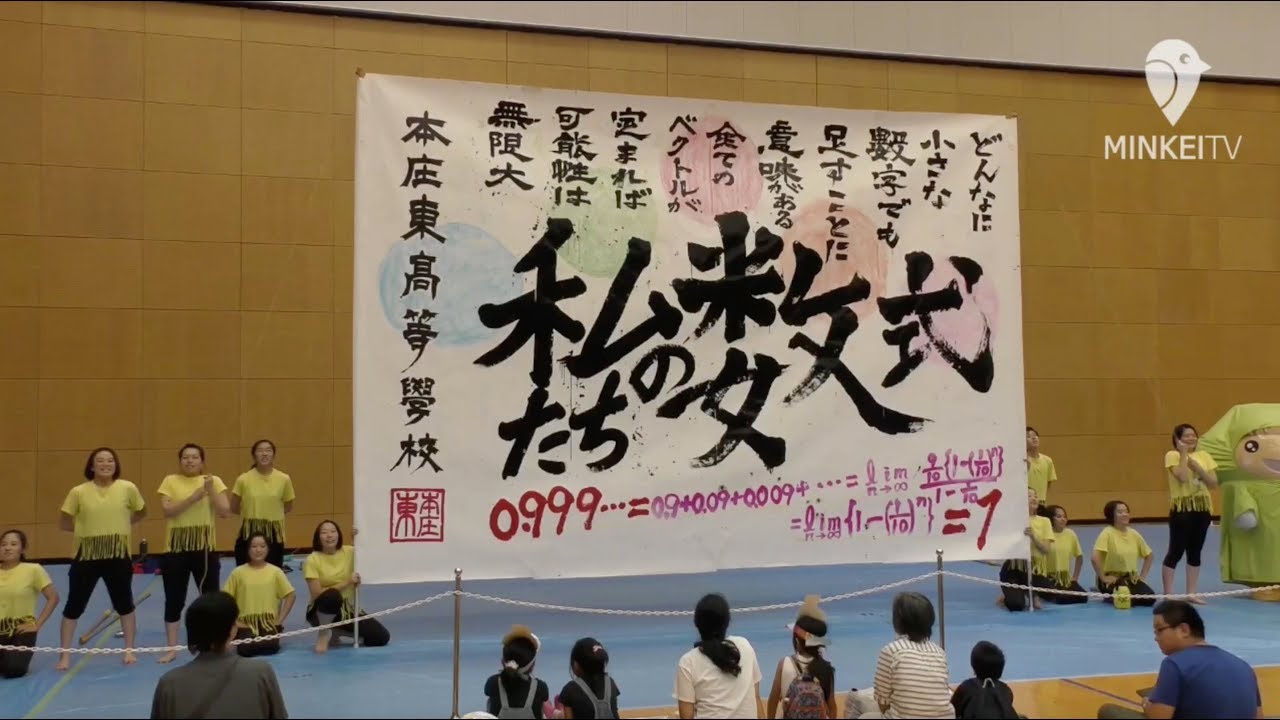 どんなに
小さな
數字でも
足すことに
意味がある
全ての
ベクトルが
定まれば
可能性は
無限大
私たちの数式
0.999…=0.9+0.09+0.009+…=lim n→∞ 9/10{1-(1/10)^n}/1-1/10
=lim n→∞{1-(1/10)^n}=1
本庄東高等學校
本庄東
MINKEITV